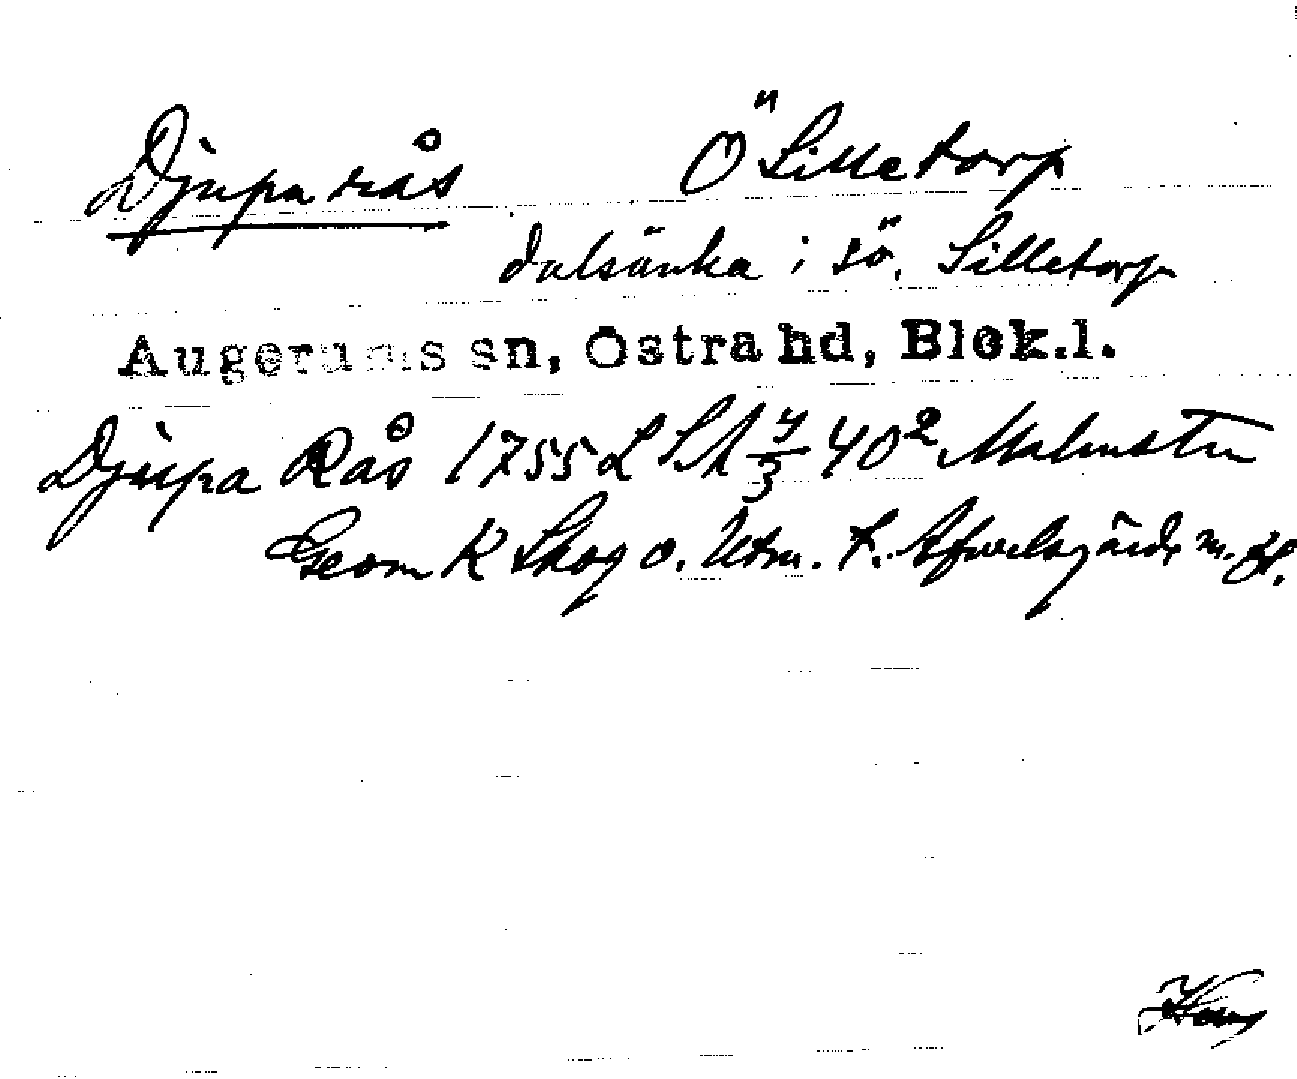 Djupa rås Ö Silletorp
dalsänka i sö. Silletorp
Augerums sn, Östra hd, Blek.l.
Djupa Rås 1755 L SkA 4/3 40² Malmsten
Geom K Skog o. Utm. t. Afvelsgärde m. fl.